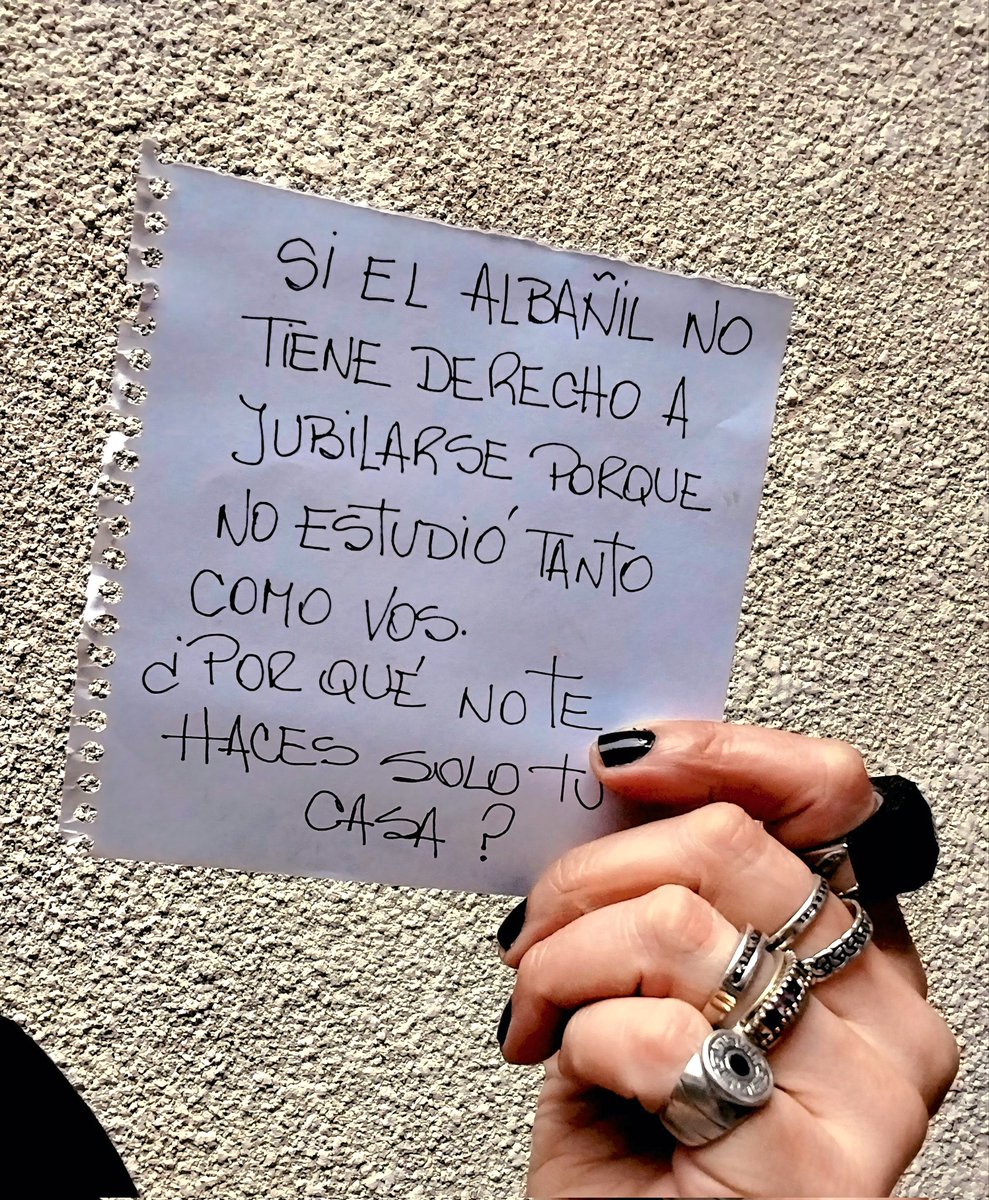 SI EL ALBAÑIL NO
TIENE DERECHO A
JUBILARSE PORQUE
NO ESTUDIÓ TANTO
COMO VOS.
¿POR QUÉ NO TE
HACES SOLO TU
CASA?